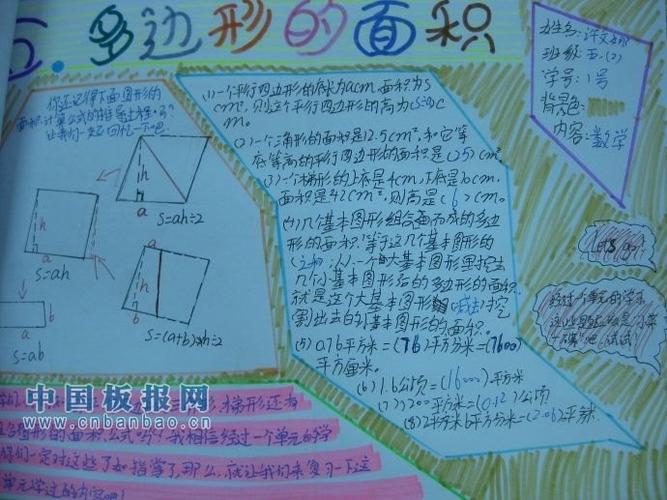 5.多边形的面积
你还记得下面图形的
面积计算公式的推导过程吗?
让我们一起回忆一下吧
h
a
S=ah÷2
h
a
S=ah
a
h
b
S=(a+b)×h÷2
b
a
S=ab
(1)一个平行四边形的底为acm,面积为S
cm²,则这个平行四边形的高为(S÷a)c
m。
(2)一个三角形的面积是12.5cm²,和它等
底等高的平行四边形的面积是(25)cm²
(3)一个梯形的上底是4cm,下底是10cm,
面积是42cm²,则高是(6)cm。
(4)几个基本图形组合而成的多边
形的面积,等于这几个基本图形的
(之和)从一个大基本图形里挖去
几个小基本图形后的多边形的面积
就是这个大基本图形 挖
割出去的小基本图形的面积.
(5)0.76平方米=(76)平方分米=(7600)
平方厘米。
(6)1.6公顷=(16000)平方米
(7)1200平方米=(0.12)公顷
(8)2平方米6平方分米=(2.06)平方米
姓名:许文
班级:五.(2)
学号:1号
背景色:
内容:数学
Let's go!
经过一个单元的学习
这些题应该是小菜
一碟吧,试试!
形,梯形还有
合图形的面积公式吗?我相信经过一个单元的学
你们一定对这些了如指掌了,那么,就让我们来复习一下这
单元学过的内容吧!
中国板报网
www.cnbanbao.cn